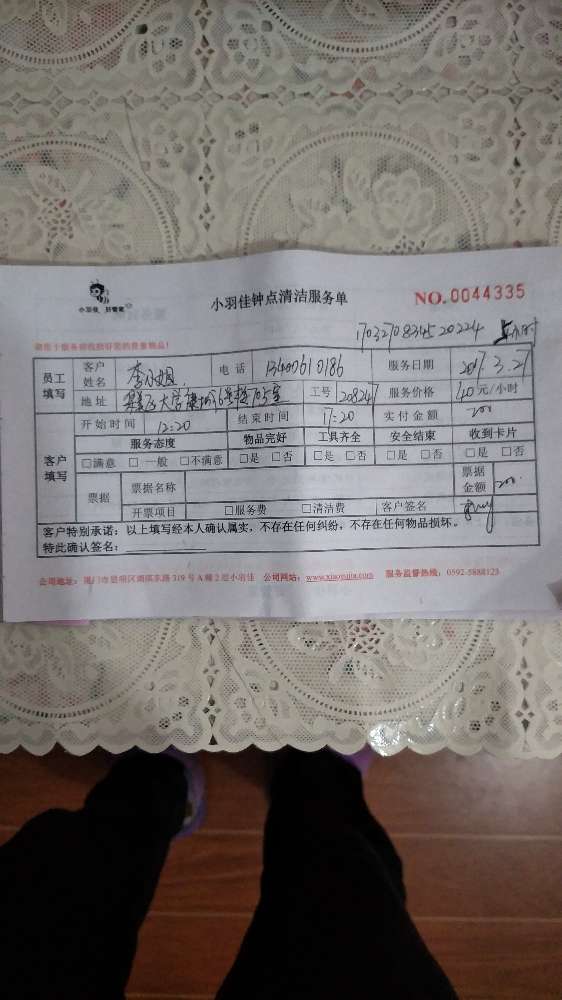 小羽佳 好管家
小羽佳钟点清洁服务单
NO.0044335
1703270834520224 5小时
员工填写 客户姓名 李小姐 电话 13400610186 服务日期 2017.3.27
地址 工号 208247 服务价格 40元/小时
客户填写 开始时间 12:20 结束时间 17:20 实付金额 200
服务态度 物品完好 工具齐全 安全结束 收到卡片
□满意 □一般 □不满意 □是 □否 □是 □否 □是 □否 □是 □否
票据 票据名称 票据金额 200.
开票项目 □服务费 □清洁费 客户签名
客户特别承诺：以上填写经本人确认属实，不存在任何纠纷，不存在任何物品损坏。
特此确认签名：
公司地址：厦门市思明区湖滨东路319号A幢2层小羽佳 公司网站：www.xiaoyujia.com 服务监督热线：0592-5888123